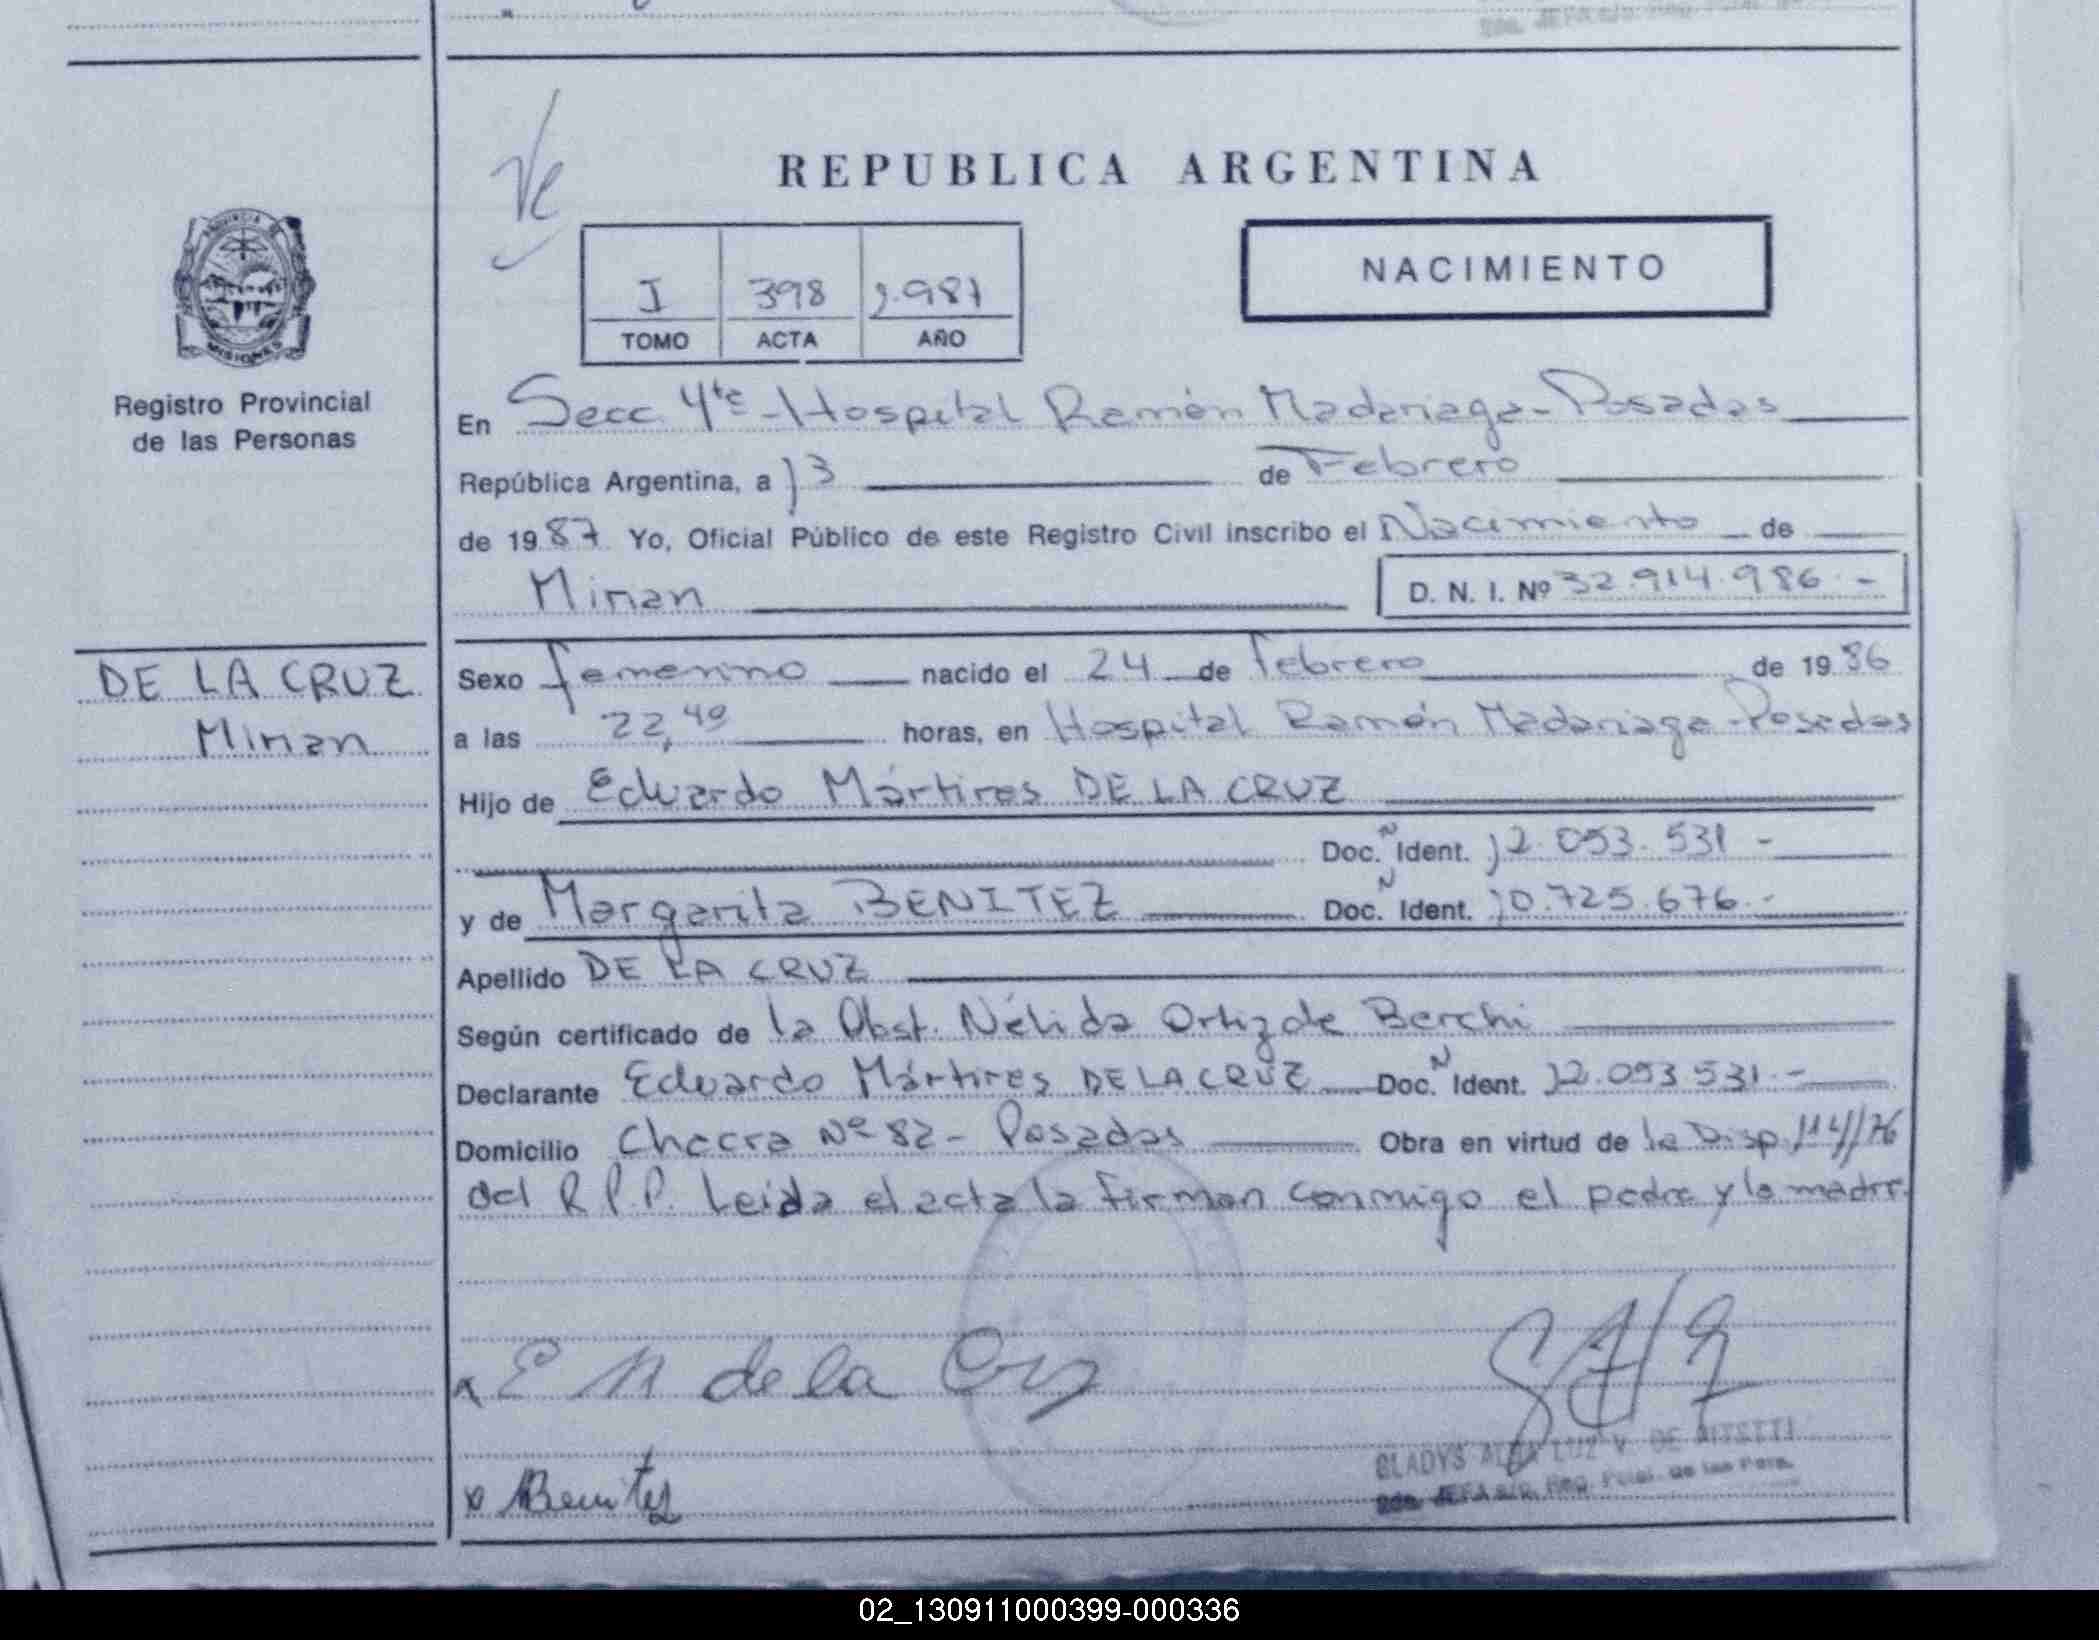 Ve
REPUBLICA ARGENTINA
PROVINCIA DE
MISIONES
I 398 1.987
TOMO ACTA AÑO
NACIMIENTO
Registro Provincial
de las Personas
En Secc 4ta - Hospital Ramón Madariaga - Posadas
República Argentina, a 13 de Febrero
de 1987 Yo, Oficial Público de este Registro Civil inscribo el Nacimiento de
Mirian D. N. I. Nº 32.914.986.-
DE LA CRUZ
Mirian
Sexo femenino nacido el 24 de Febrero de 1986
a las 22,40 horas, en Hospital Ramón Madariaga - Posadas
Hijo de Eduardo Mártires DE LA CRUZ
Doc. Ñ Ident. 12.053.531 -
y de Margarita BENITEZ Doc. Ñ Ident. 10.725.676.-
Apellido DE LA CRUZ
Según certificado de la Obst. Nélida Ortiz de Berchi
Declarante Eduardo Mártires DE LA CRUZ Doc. Ñ Ident. 12.053.531.-
Domicilio Chacra Nº 82 - Posadas Obra en virtud de la Disp. 114/76
del R.P.P. Leida el acta la firman conmigo el padre y la madre.
x E M de la Cruz
GLADYS ALBA LUZ V. DE
2da. JEFA a/c. Reg. Pcial. de las Pers.
x Benitez
02_130911000399-000336